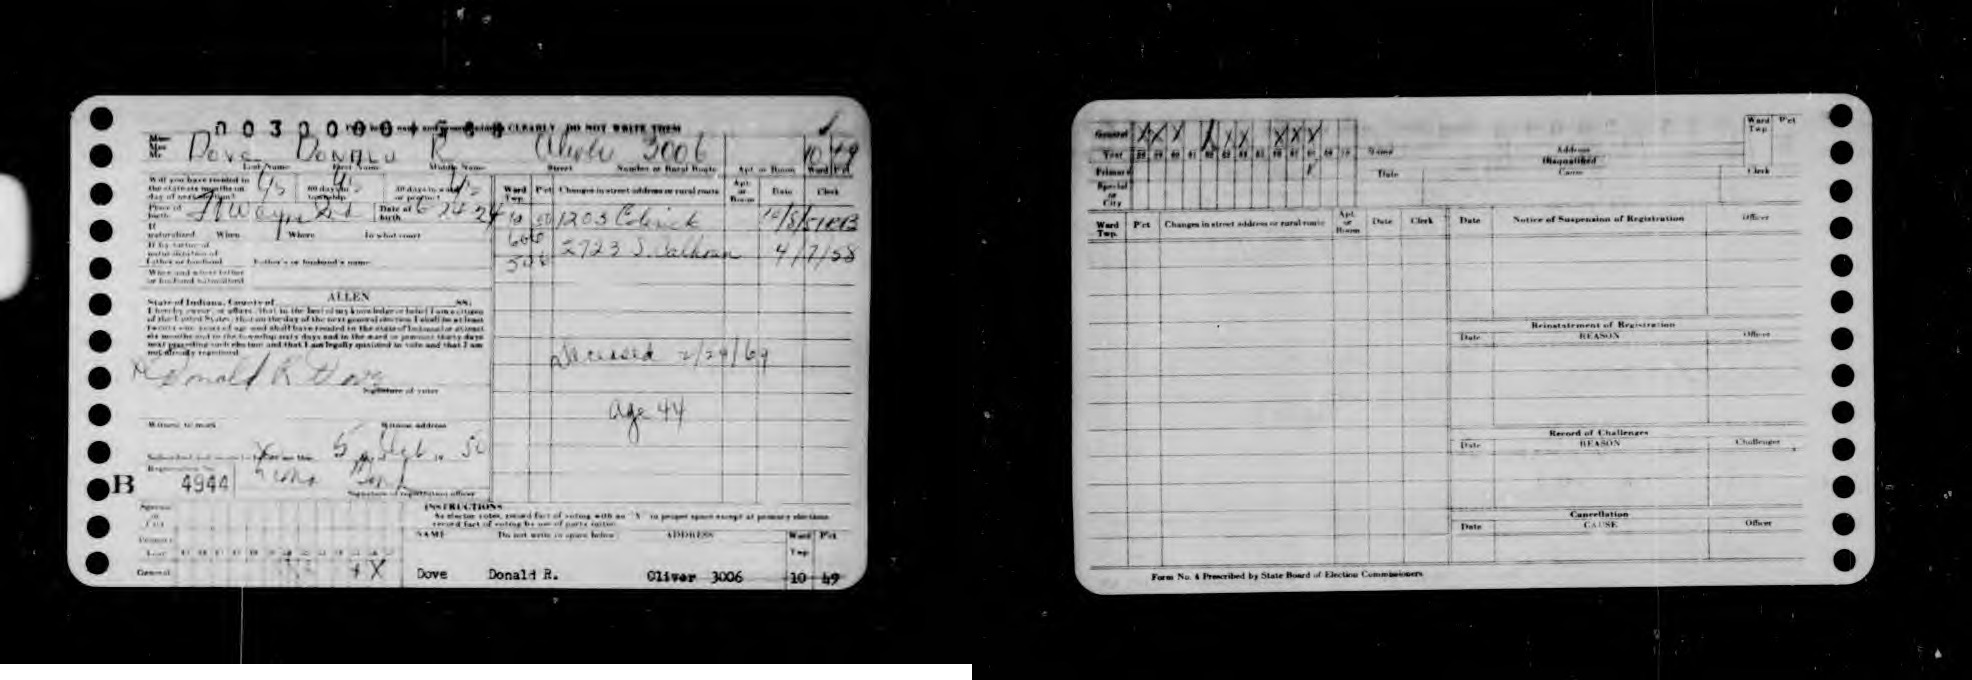 CLEARLY DO NOT WRITE THEM
Dove Donald R Oliver 3006 10 49
Last Name First Name Middle Name Street Number or Rural Route Apt. or Room Ward Pct
Will you have resided in
the state six months on
day of next election? Yes 60 days in
township Yes 30 days in ward
or precinct Yes
Place of
birth Ft Wayne Ind Date of
birth 6 24 24
If
naturalized When Where In what court
If by virtue of
naturalization of
father or husband Father's or husband's name
When and where father
or husband naturalized
State of Indiana, County of ALLEN SS:
I hereby swear, or affirm, that to the best of my knowledge or belief I am a citizen
of the United States; that on the day of the next general election I shall be at least
twenty-one years of age and shall have resided in the state of Indiana for at least
six months and in the township sixty days and in the ward or precinct thirty days
next preceding such election and that I am legally qualified to vote and that I am
not already registered
Donald R Dove
Signature of voter
Witness to mark Witness address
5 50
Registration No.
B 4944
Signature of registration officer
Ward
Twp. Pct Changes in street address or rural route Apt.
or
Room Date Clerk
10 1203 10/8/51
606 2723 S. Calhoun 4/7/58
Deceased 2/29/69
Age 44
Special
or
City
Primary
Year
General X X
INSTRUCTIONS
As elector votes, record fact of voting with an "X" in proper space except at primary elections
record fact of voting by use of party initial
NAME Do not write in space below ADDRESS Ward
Twp Pct
Dove Donald R. Oliver 3006 10 49
General X X X X X X X X X
Year 58 59 60 61 62 63 64 65 66 67 68 69 70
Primary
Special
or
City
Name Address Ward
Twp Pct
Disqualified
Date Cause Clerk
Ward
Twp. Pct Changes in street address or rural route Apt.
or
Room Date Clerk
Date Notice of Suspension of Registration Officer
Reinstatement of Registration
Date REASON Officer
Record of Challenges
Date REASON Challenger
Cancellation
Date CAUSE Officer
Form No. 4 Prescribed by State Board of Election Commissioners